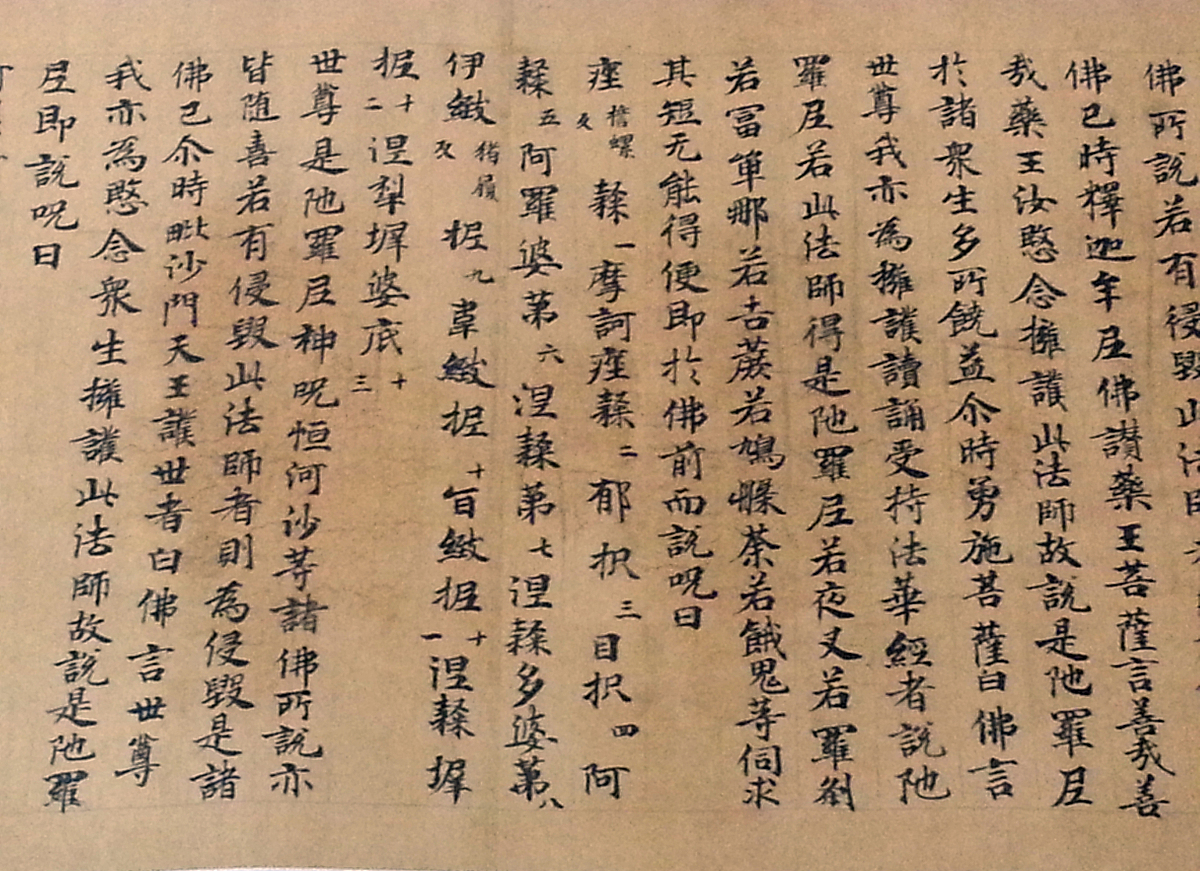 佛所說若有侵毀此法師
佛已時釋迦牟尼佛讚藥王菩薩言善哉善
哉藥王汝愍念擁護此法師故說是陁羅尼
於諸衆生多所饒益尒時勇施菩薩白佛言
世尊我亦為擁護讀誦受持法華經者說陁
羅尼若此法師得是陁羅尼若夜叉若羅刹
若富單那若吉蔗若鳩槃荼若餓鬼等伺求
其短无能得便即於佛前而說呪曰
痤誓螺反隸一摩訶痤隸二郁枳三目枳四阿
隸五阿羅婆第六涅隸第七涅隸多婆第八
伊緻猪履反抳九韋緻抳十旨緻抳十一涅隸墀
抳十二涅犁墀婆底十三
世尊是陁羅尼神呪恒河沙等諸佛所說亦
皆随喜若有侵毀此法師者則為侵毀是諸
佛已尒時毗沙門天王護世者白佛言世尊
我亦為愍念衆生擁護此法師故說是陁羅
尼即說呪曰